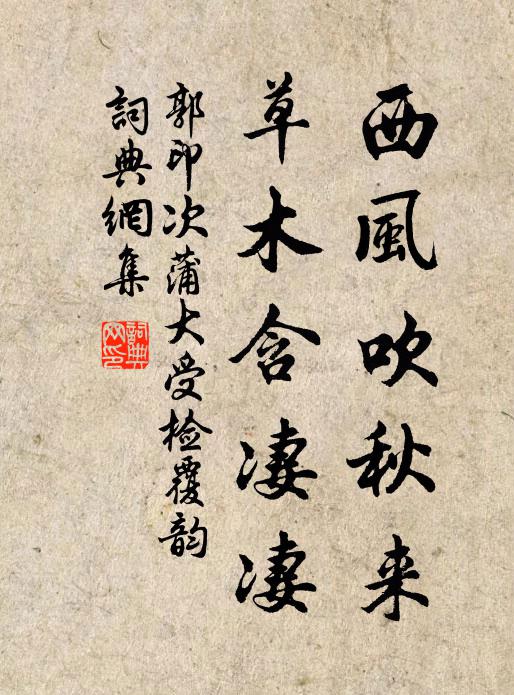 西風吹秋来
草木含凄凄
郭印次蒲大受检覆韵
詞典網集
詞典网印